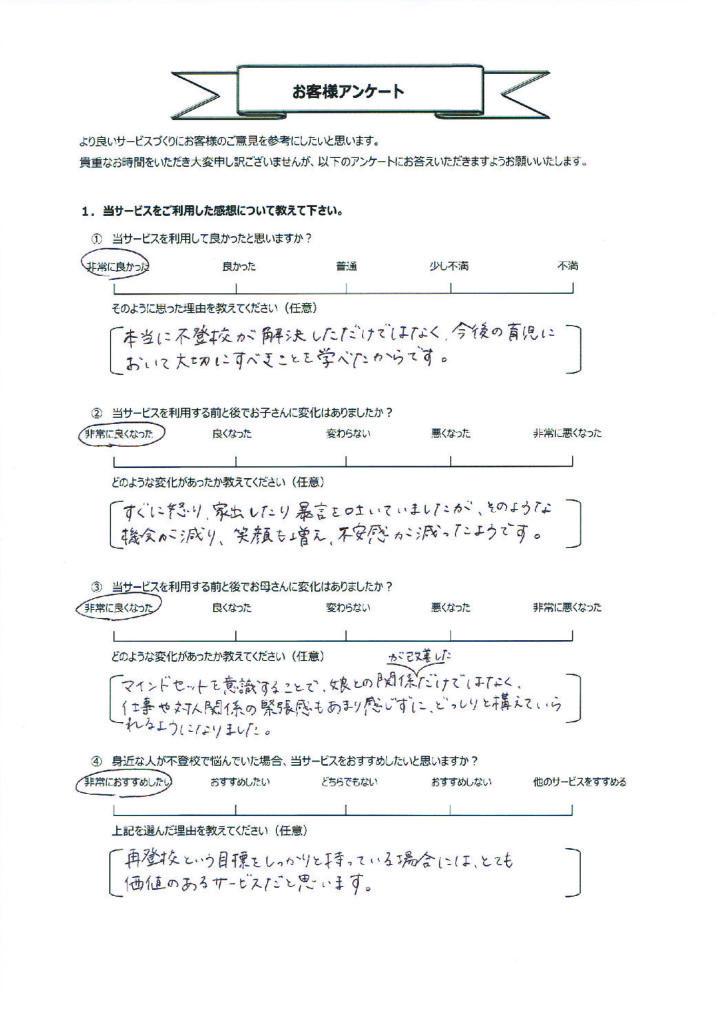 お客様アンケート
より良いサービスづくりにお客様のご意見を参考にしたいと思います。
貴重なお時間をいただき大変申し訳ございませんが、以下のアンケートにお答えいただきますようお願いいたします。
1．当サービスをご利用した感想について教えて下さい。
① 当サービスを利用して良かったと思いますか？
非常に良かった 良かった 普通 少し不満 不満
そのように思った理由を教えてください（任意）
本当に不登校が解決しただけではなく、今後の育児に
おいて大切にすべきことを学べたからです。
② 当サービスを利用する前と後でお子さんに変化はありましたか？
非常に良くなった 良くなった 変わらない 悪くなった 非常に悪くなった
どのような変化があったか教えてください（任意）
すぐに怒り、家出したり暴言を吐いていましたが、そのような
機会が減り、笑顔も増え、不安感が減ったようです。
③ 当サービスを利用する前と後でお母さんに変化はありましたか？
非常に良くなった 良くなった 変わらない 悪くなった 非常に悪くなった
どのような変化があったか教えてください（任意）
が改善した
マインドセットを意識することで、娘との関係だけではなく、
仕事や対人関係の緊張感もあまり感じずに、どっしりと構えていら
れるようになりました。
④ 身近な人が不登校で悩んでいた場合、当サービスをおすすめしたいと思いますか？
非常におすすめしたい おすすめしたい どちらでもない おすすめしない 他のサービスをすすめる
上記を選んだ理由を教えてください（任意）
再登校という目標をしっかりと持っている場合には、とても
価値のあるサービスだと思います。